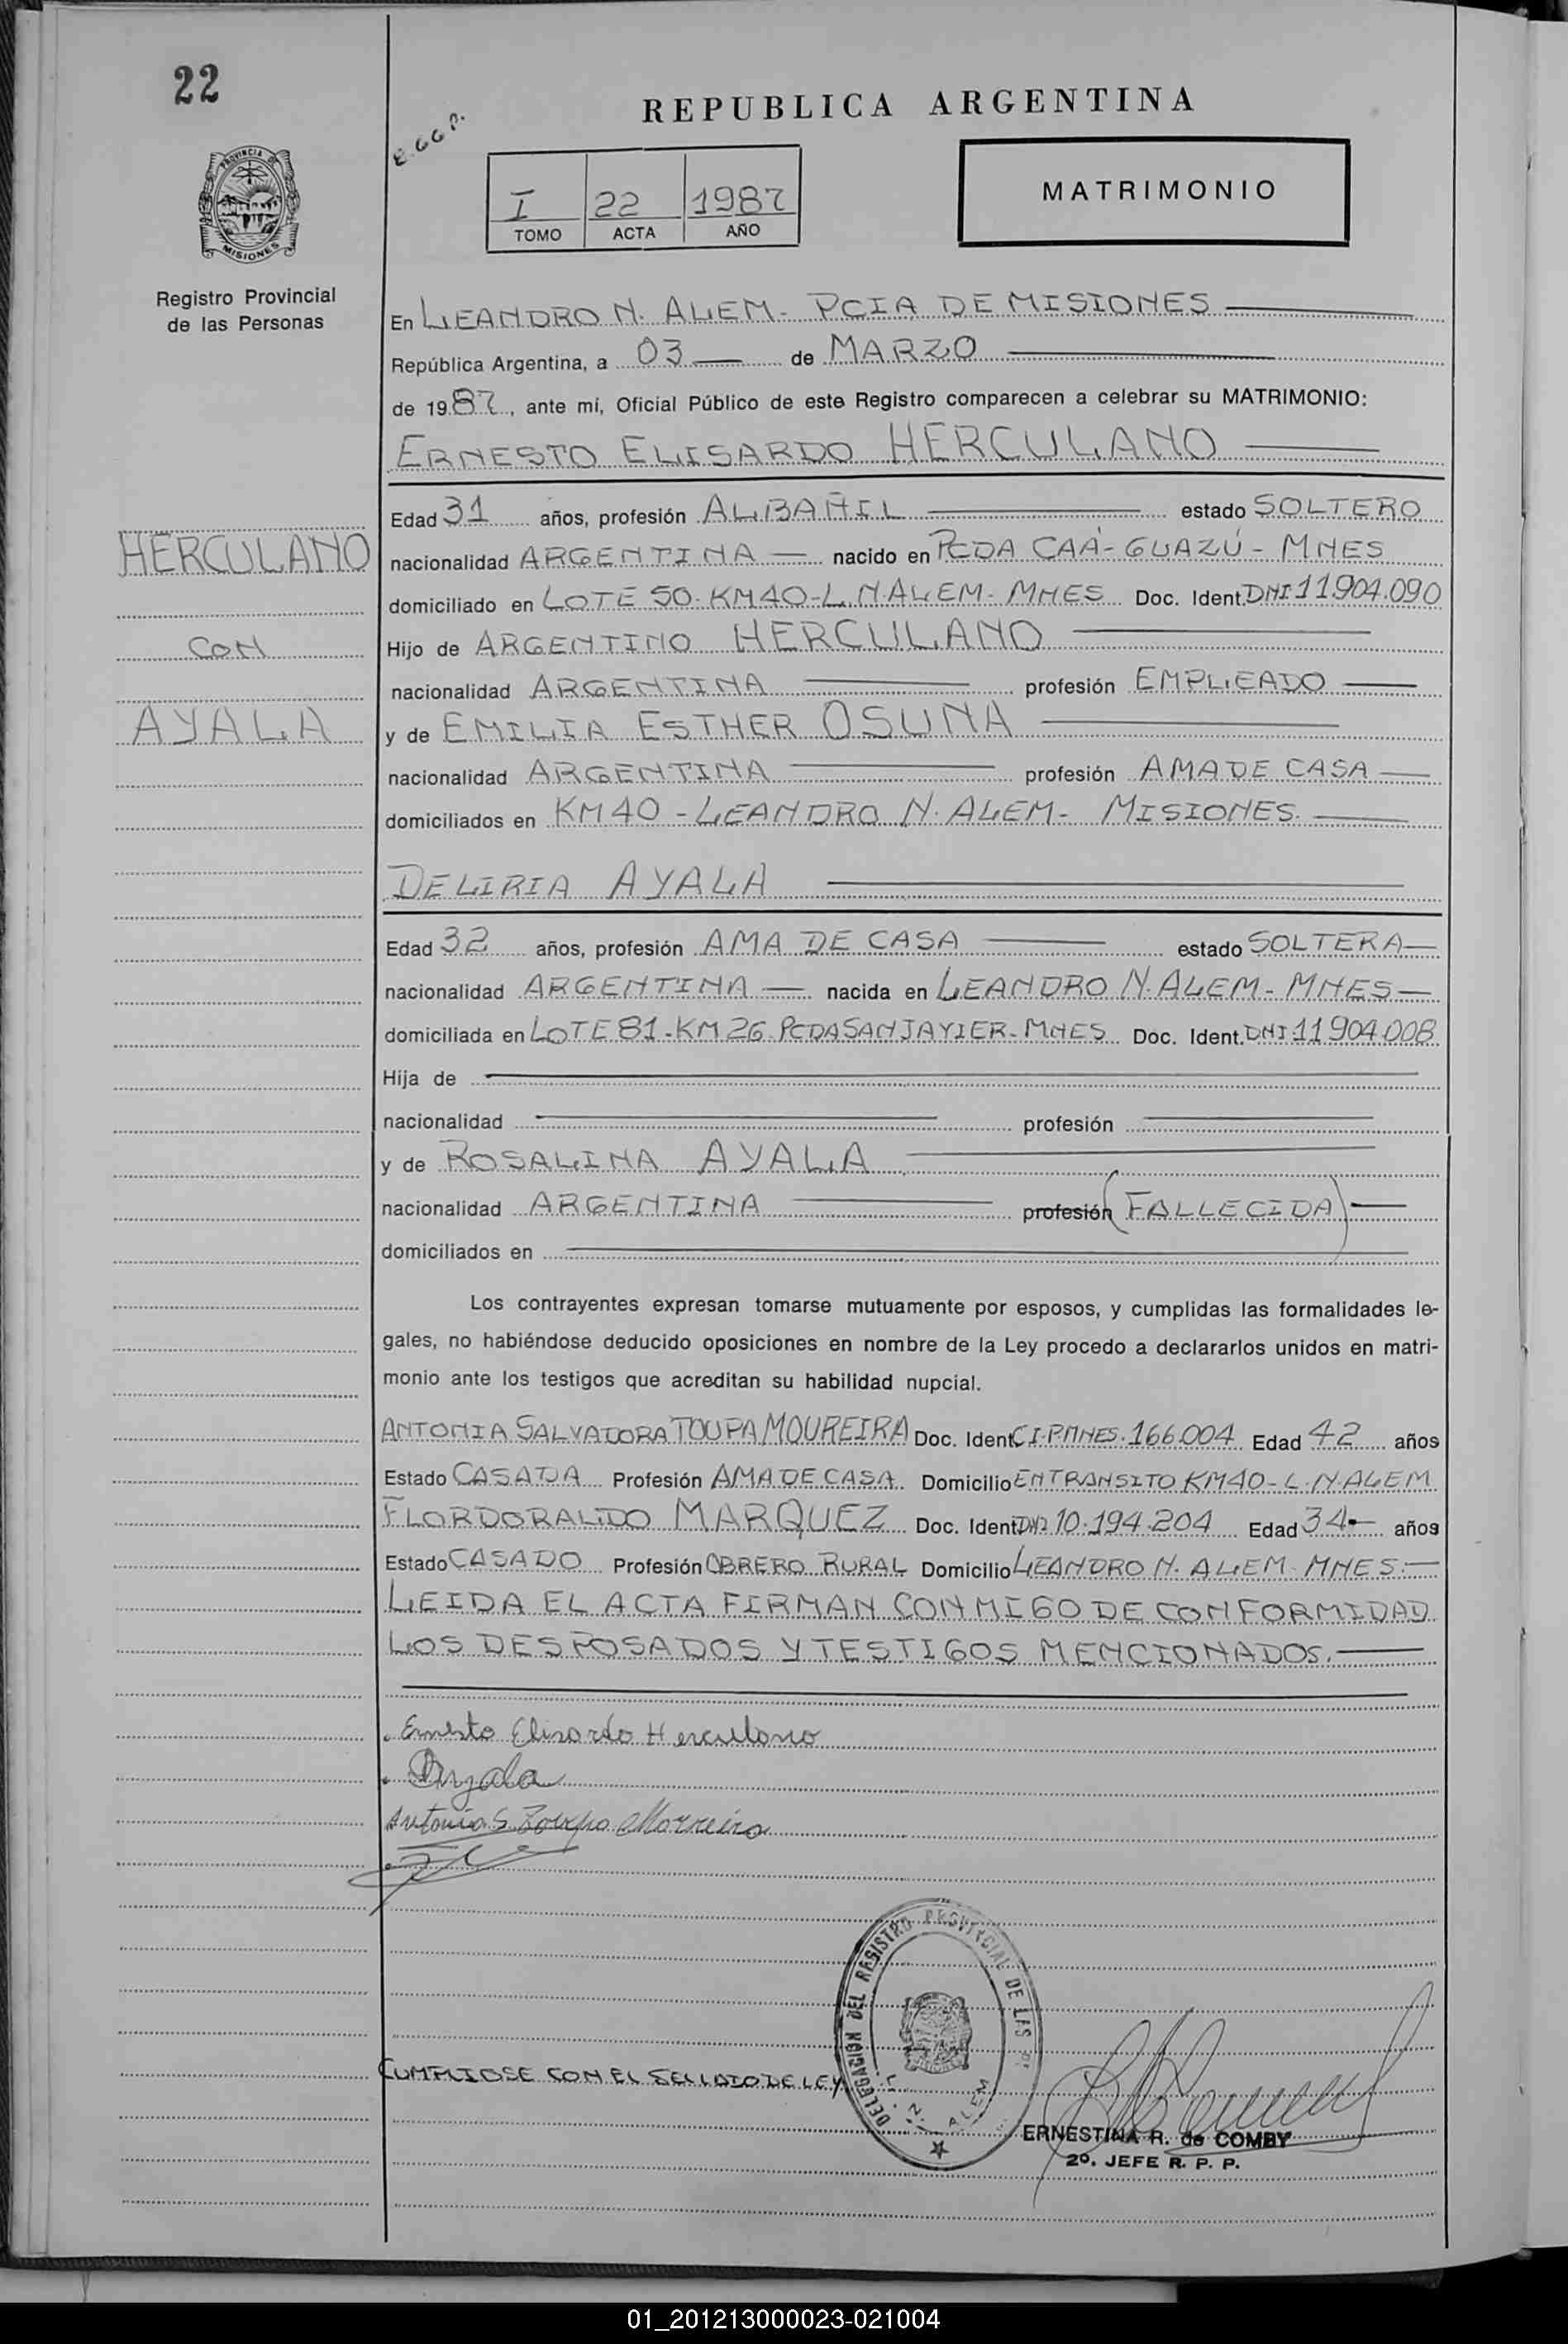 22
REPUBLICA ARGENTINA
PROVINCIA DE
MISIONES
I 22 1987
TOMO ACTA AÑO
MATRIMONIO
Registro Provincial
de las Personas
En LEANDRO N. ALEM - PCIA DE MISIONES
República Argentina, a 03 de MARZO
de 1987, ante mí, Oficial Público de este Registro comparecen a celebrar su MATRIMONIO:
ERNESTO ELISARDO HERCULANO
Edad 31 años, profesión ALBAÑIL estado SOLTERO
HERCULANO
nacionalidad ARGENTINA nacido en PCDA CAÁ-GUAZÚ - MNES
domiciliado en LOTE 50-KM40-L.N.ALEM-MNES Doc. Ident. DNI 11.904.090
CON
Hijo de ARGENTINO HERCULANO
nacionalidad ARGENTINA profesión EMPLEADO
AYALA
y de EMILIA ESTHER OSUNA
nacionalidad ARGENTINA profesión AMA DE CASA
domiciliados en KM40 - LEANDRO N. ALEM - MISIONES
DELIRIA AYALA
Edad 32 años, profesión AMA DE CASA estado SOLTERA
nacionalidad ARGENTINA nacida en LEANDRO N. ALEM - MNES
domiciliada en LOTE 81-KM 26 PCDA SAN JAVIER-MNES Doc. Ident. DNI 11.904.008
Hija de
nacionalidad profesión
y de ROSALINA AYALA
nacionalidad ARGENTINA profesión (FALLECIDA)
domiciliados en
Los contrayentes expresan tomarse mutuamente por esposos, y cumplidas las formalidades le-
gales, no habiéndose deducido oposiciones en nombre de la Ley procedo a declararlos unidos en matri-
monio ante los testigos que acreditan su habilidad nupcial.
ANTONIA SALVADORA TOUPA MOUREIRA Doc. Ident. C.I.P.MNES. 166.004 Edad 42 años
Estado CASADA Profesión AMA DE CASA Domicilio EN TRANSITO KM40-L.N.ALEM
FLORDORALIDO MARQUEZ Doc. Ident. DNI 10.194.204 Edad 34 años
Estado CASADO Profesión OBRERO RURAL Domicilio LEANDRO N. ALEM-MNES.
LEIDA EL ACTA FIRMAN CONMIGO DE CONFORMIDAD
LOS DESPOSADOS Y TESTIGOS MENCIONADOS.
Ernesto Elisardo Herculano
D Ayala
Antonia S. Toupa Moureira
DELEGACIÓN DEL REGISTRO PROVINCIAL DE LAS
L. N. ALEM
CUMPLIOSE CON EL SELLADO DE LEY
ERNESTINA R. de COMBY
2º. JEFE R. P. P.
01_201213000023-021004